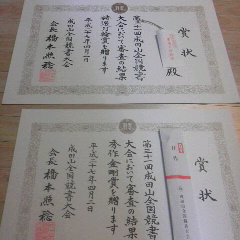 賞状
殿
第三十一回成田山全国競書
大会において審査の結果
特選銅賞を贈ります
平成二十七年四月二日
成田山全国競書大会
会長 橋本照稔
賞状
第三十一回成田山全国競書
大会において審査の結果
秀作金剛賞を贈ります
平成二十七年四月二日
成田山全国競書大会
会長 橋本照稔